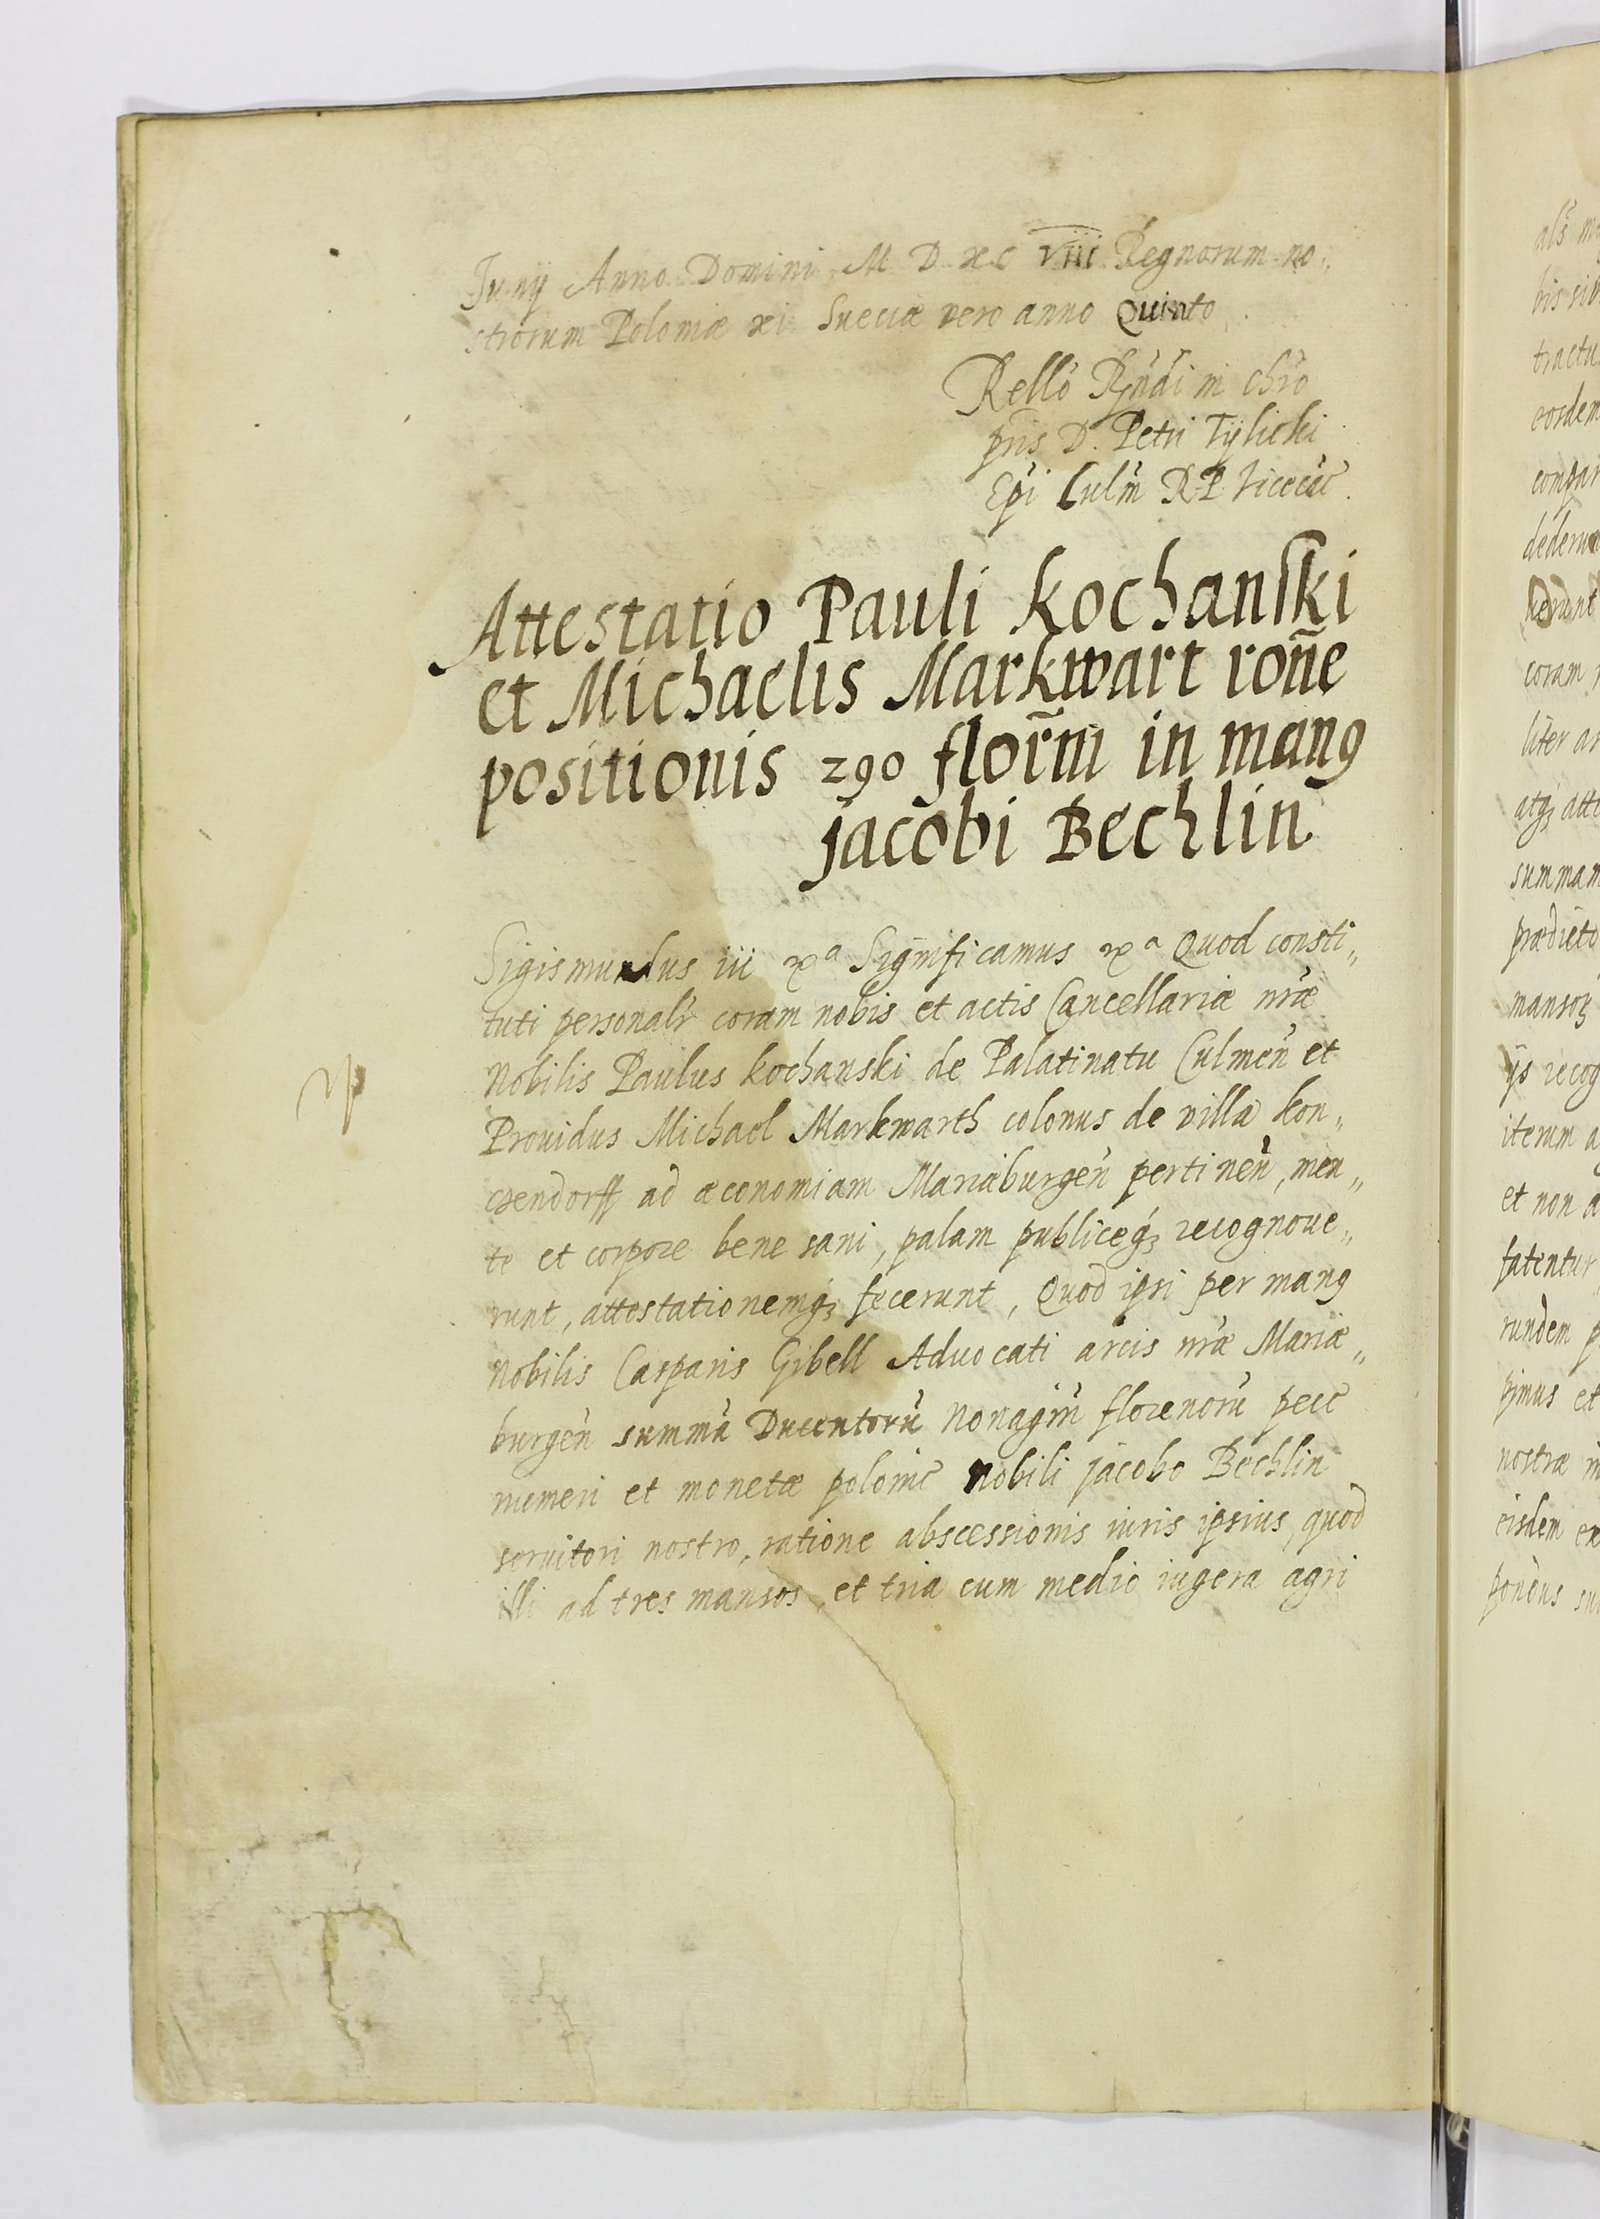 Junÿ Anno Domini M D xc viii Regnorum no„
strorum Poloniæ xi Sueciæ vero anno Quinto
Rello Rṽndi in chr̃o
pris D. Petri Tÿlicki
Epi Culm̃ R P Vicecac̃
Attestatio Pauli Kochanski
et Michaelis Markwart ron̄e
positionis 290 flor̃m in man9
jacobi Bechlin
Sigismundus iii rxa Significamus rxa Quod consti„
tuti personalr̃ coram nobis et actis Cancellariæ nr̃æ
Nobilis Paulus kochanski de Palatinatu Culmen̄ et
Prouidus Michael Markwarth colonus de villa kon„
czendorff ad œconomiam Mariæburgen̄ pertinen̄, men„
te et corpore bene sani, palam publiceq₃ recognoue„
runt, attestationemq₃ fecerunt, Quod ipsi per man9
Nobilis Casparis Gibell Aduocati arcis nr̃æ Mariæ„
burgen̄ summā Ducentorū Nonagin̄ florenorū pecc̃
numeri et monetæ polonic̃ Nobili jacobo Bechlin
seruitori nostro, ratione abscessionis iuris ipsius, quod
illi ad tres mansos, et tria cum medio iugera agri
als
tractu
eosdem
compar
dederun
coram
liter
atq₃ atte
summam
prædicto
ijs recog
iterum a
et non a
fatentur
rundem p
pimus et
nostræ
eisdem